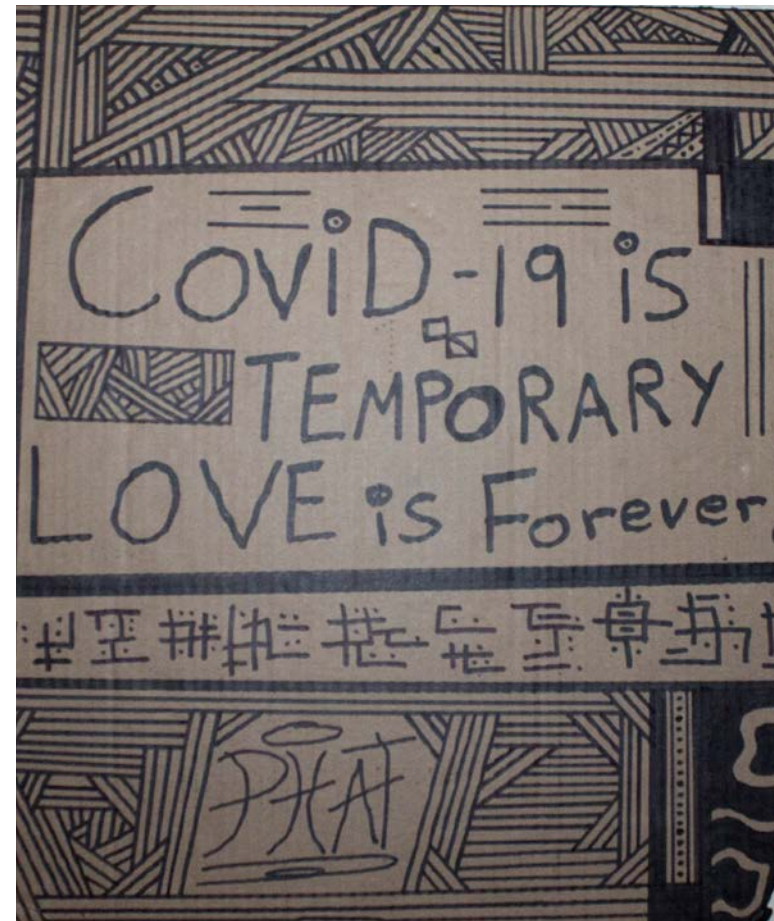 COViD-19 is
TEMPORARY
LOVE is Forever
PHAT